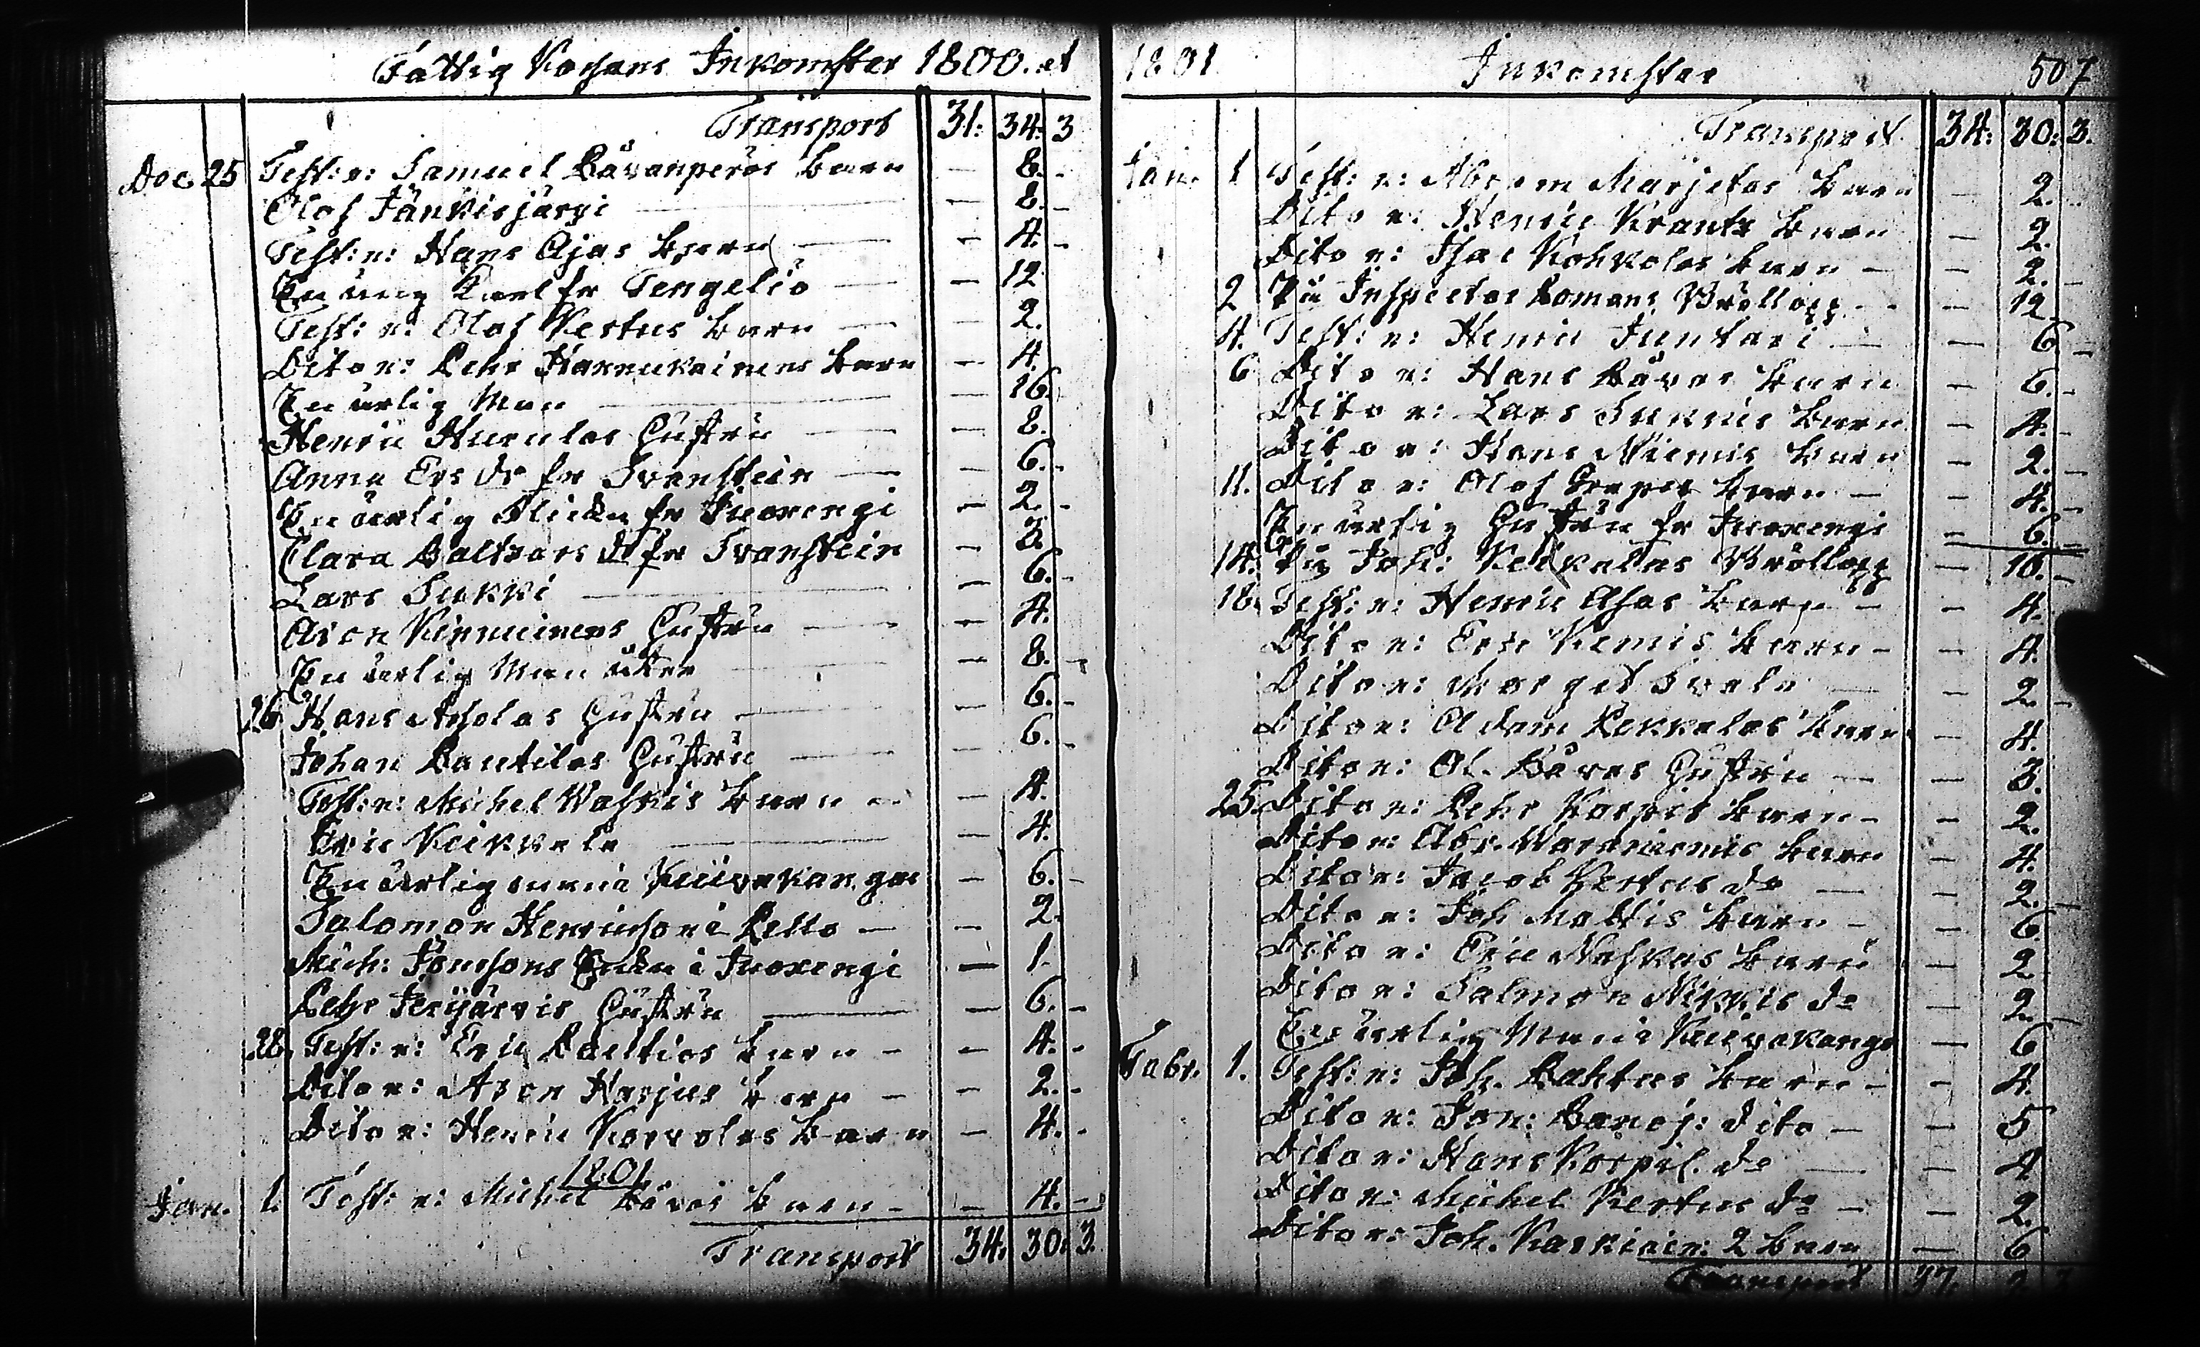 Fattig Kassans Inkomster 1800. et
Transport 31: 34: 3
Dec. 25 Test: v: Samuel Bävanperäs barn — 8. -
Olof Jänkisjärfvi — 8. -
Test: v: Hans Ajas barn — 4. -
En ung Karl fr Tengeliö — 12
Test: v: Olof Kertus barn — 2.
Dito v: Pehr Hannukainens barn — 4.
En ärlig Man — 16.
Henric Hurulas Hustru — 8.
Anna Ers dr fr Svanstein — 6. -
En ärlig Flicka fr Juoxengi — 2. -
Clara Baltzars dr fr Svanstein —
Lars Sukki — 6. -
Aron Kinnuinens Hustru — 4.
En ärlig Man åter — 8. -
26 Hans Aholas Hustru — 6. -
Johan Pantilas Hustru — 6. -
Test: v: Michel Waskis barn — 4.
Eric Keikkala — 4.
En ärlig man i Kuivakangas — 6. -
Salomon Henricson i Pello — 2.
Mich: Jönssons Enka i Juoxengi — 1.
Pehr Jerijärvis Hustru — 6. -
28. Test: v: Eric Poeltios barn — 4. -
Dito v: Aron Harjus barn — 2. -
Dito v: Henric Korvolas barn — 4. -
1801
Jan. 1. Test: v: Michel Bävas barn — 4. -
Transport 34. 30. 3.
1801 Inkomster 507
Transport 34: 30: 3.
Jan. 1 Test: v: Abram Marjetas barn — 2.
Dito v: Henric Krants barn — 2.
Dito v: Isac Kohkolas barn — 2. -
2 På Inspector Bomans Bröllopp — 12
4. Test: v: Henric Juntari — 6 -
6 Dito v: Hans Bävas barn — 6. -
Dito v: Lars Sukkis barn — 4. -
Dito v: Hans Niemis barn — 2. -
11. Dito v: Olof Grapes barn — 4. -
En ärlig Hustru fr Juoxengi — 6. -
14. På Joh: Keikalas Bröllopp — 10. -
18. Test: v: Henric Ahas barn — 4.
Dito v: Eric Kemis barn — 4.
Dito v: Marget — 2. -
Dito v: Adam Pekkalas barn — 4.
Dito v: Ol. Bävas Hustru — 3.
25. Dito v: Pehr Korpis barn — 2.
Dito v: Abr. Waraniemis barn — 4.
Dito v: Jacob Kertus do — 2. -
Dito v: Joh Mattis barn — 6.
Dito v: Eric Naskas barn — 2
Dito v: Salmon Nikkis do — 2. -
En ärlig Man i Kuivakangas — 6
Febr. 1. Test: v: Joh. Lahtus barn — 4.
Dito v: Jon: Banoj: dito — 5
Dito v: Hans Korpil. do — 4
Dito v: Michel Kertus do — 2.
Dito v: Joh. Karkiain: 2 barn — 6
Transport 37. 2 3